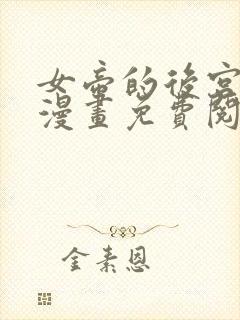 女帝的後宮
漫畫免費閱
金素恩